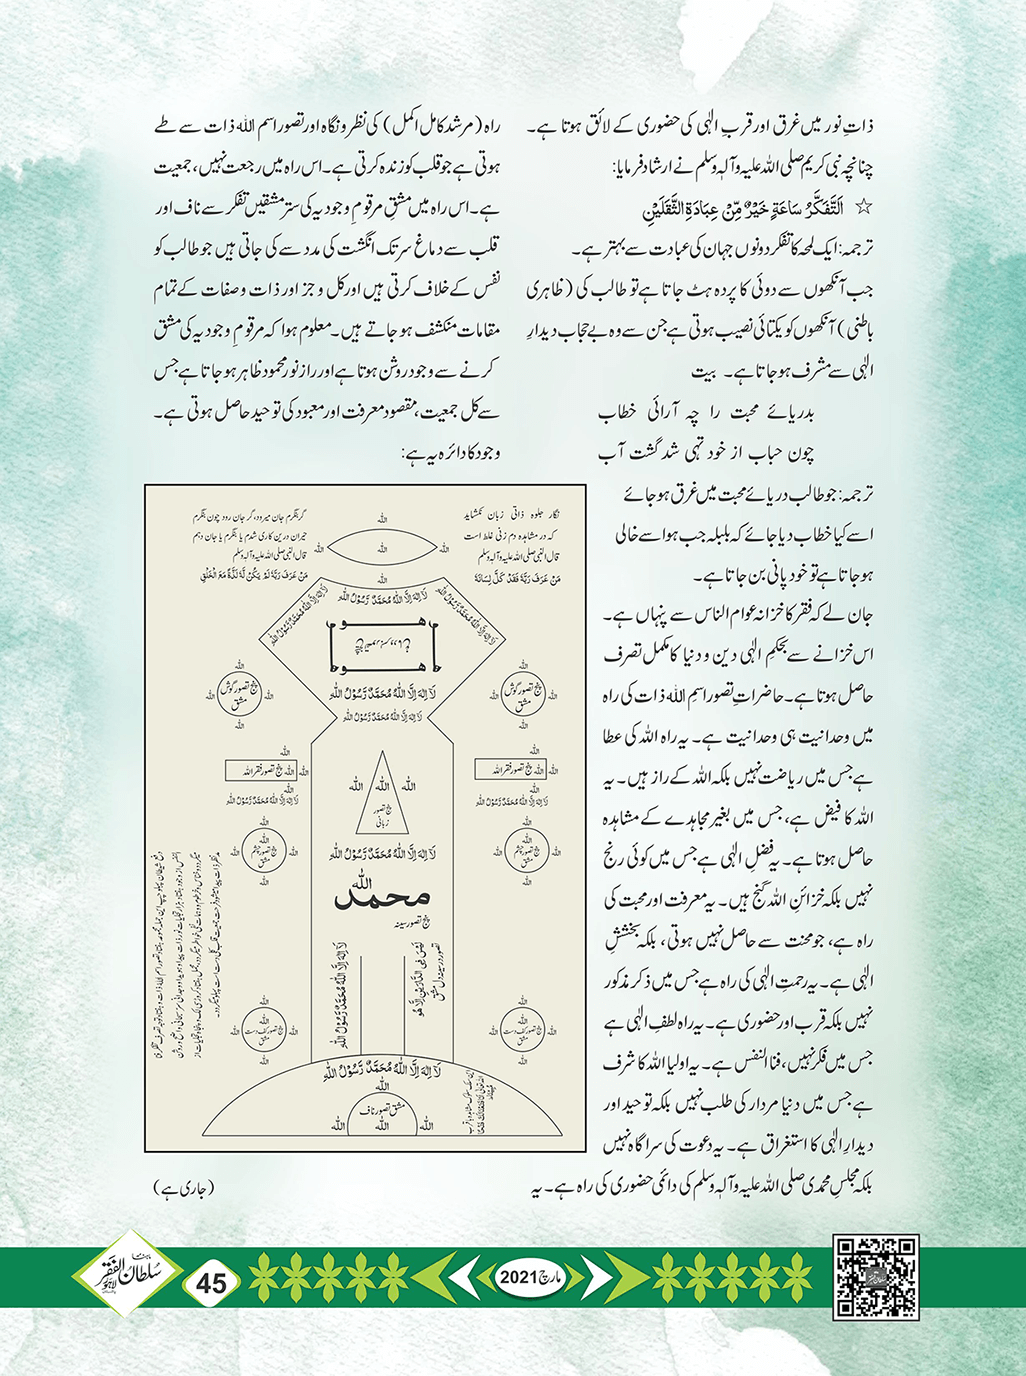 ذاتِ نور میں غرق اور قربِ الٰہی کی حضوری کے لائق ہوتا ہے۔
چنانچہ نبی کریم صلی اللہ علیہ وآلہٖ وسلم نے ارشاد فرمایا:
☆ اَلتَّفَكَّرُ سَاعَةٍ خَيْرٌ مِّنْ عِبَادَةِ الثَّقَلَيْنِ
ترجمہ: ایک لمحہ کا تفکر دونوں جہان کی عبادت سے بہتر ہے۔
جب آنکھوں سے دوئی کا پردہ ہٹ جاتا ہے تو طالب کی (ظاہری
باطنی) آنکھوں کو یکتائی نصیب ہوتی ہے جن سے وہ بے حجاب دیدارِ
الٰہی سے مشرف ہو جاتا ہے۔ بیت
بدریائے محبت را چہ آرائی خطاب
چون حباب از خود تہی شد گشت آب
ترجمہ: جو طالب دریائے محبت میں غرق ہو جائے
اسے کیا خطاب دیا جائے کہ بلبلہ جب ہوا سے خالی
ہو جاتا ہے تو خود پانی بن جاتا ہے۔
جان لے کہ فقر کا خزانہ عوام الناس سے پنہاں ہے۔
اس خزانے سے بحکمِ الٰہی دین و دنیا کا مکمل تصرف
حاصل ہوتا ہے۔ حاضراتِ تصور اسمِ اللہ ذات کی راہ
میں وحدانیت ہی وحدانیت ہے۔ یہ راہ اللہ کی عطا
ہے جس میں ریاضت نہیں بلکہ اللہ کے راز ہیں۔ یہ
اللہ کا فیض ہے، جس میں بغیر مجاہدے کے مشاہدہ
حاصل ہوتا ہے۔ یہ فضلِ الٰہی ہے جس میں کوئی رنج
نہیں بلکہ خزائنِ اللہ گنج ہیں۔ یہ معرفت اور محبت کی
راہ ہے، جو محنت سے حاصل نہیں ہوتی، بلکہ بخششِ
الٰہی ہے۔ یہ رحمتِ الٰہی کی راہ ہے جس میں ذکر مذکور
نہیں بلکہ قرب اور حضوری ہے۔ یہ راہ لطفِ الٰہی ہے
جس میں فکر نہیں، فنا النفس ہے۔ یہ اولیا اللہ کا شرف
ہے جس میں دنیا مردار کی طلب نہیں بلکہ توحید اور
دیدارِ الٰہی کا استغراق ہے۔ یہ دعوت کی سراگاہ نہیں
بلکہ مجلسِ محمدی صلی اللہ علیہ وآلہٖ وسلم کی دائمی حضوری کی راہ ہے۔ یہ
راہ (مرشد کامل اکمل) کی نظر و نگاہ اور تصور اسم اللہ ذات سے طے
ہوتی ہے جو قلب کو زندہ کرتی ہے۔ اس راہ میں رجعت نہیں، جمعیت
ہے۔ اس راہ میں مشقِ مرقومِ وجودیہ کی ستر مشقیں تفکر سے ناف اور
قلب سے دماغ سر تک انگشت کی مدد سے کی جاتی ہیں جو طالب کو
نفس کے خلاف کرتی ہیں اور کل و جز اور ذات و صفات کے تمام
مقامات منکشف ہو جاتے ہیں۔ معلوم ہوا کہ مرقومِ وجودیہ کی مشق
کرنے سے وجود روشن ہوتا ہے اور راز نور محمود ظاہر ہو جاتا ہے جس
سے کل جمعیت، مقصود معرفت اور معبود کی توحید حاصل ہوتی ہے۔
وجود کا دائرہ یہ ہے:
نگار جلوہ ذاتی زبان نکشاید
کہ در مشاہدہ دم زنی غلط است
قال النبی صلی اللہ علیہ وآلہٖ وسلم
مَنْ عَرَفَ رَبَّهٗ فَقَدْ كَلَّ لِسَانُهٗ
گر بنگرم جان میرود، گر جان رود چون بنگرم
حیران درین کاری شدم یا بنگرم یا جان دہم
قال النبی صلی اللہ علیہ وآلہٖ وسلم
مَنْ عَرَفَ رَبَّهٗ لَمْ يَكُنْ لَّهٗ لَذَّةٌ مَعَ الْخَلْقِ
اللہ
اللہ اللہ اللہ
اللہ
لَآ اِلٰهَ اِلَّا اللهُ مُحَمَّدٌ رَّسُوْلُ اللهِ
لَآ اِلٰهَ اِلَّا اللهُ مُحَمَّدٌ رَّسُوْلُ اللهِ
لَآ اِلٰهَ اِلَّا اللهُ مُحَمَّدٌ رَّسُوْلُ اللهِ
ھو
ھو
لَآ اِلٰهَ اِلَّا اللهُ مُحَمَّدٌ رَّسُوْلُ اللهِ
لَآ اِلٰهَ اِلَّا اللهُ مُحَمَّدٌ رَّسُوْلُ اللهِ
اللہ
اللہ پنج تصور گوش مشق اللہ
اللہ
اللہ
اللہ پنج تصور گوش مشق اللہ
اللہ
اللہ
پنج تصور فقر اللہ اللہ اللہ
اللہ
لَآ اِلٰهَ اِلَّا اللهُ مُحَمَّدٌ رَّسُوْلُ اللهِ
اللہ
پنج تصور فقر اللہ اللہ اللہ
اللہ
لَآ اِلٰهَ اِلَّا اللهُ مُحَمَّدٌ رَّسُوْلُ اللهِ
اللہ اللہ اللہ
پنج تصور
زبانی
اللہ
اللہ اللہ پنج تصور چشم مشق اللہ
اللہ
اللہ
اللہ اللہ پنج تصور چشم مشق اللہ
اللہ
لَآ اِلٰهَ اِلَّا اللهُ مُحَمَّدٌ رَّسُوْلُ اللهِ
اللہ
محمد
پنج تصور سینہ
لَآ اِلٰهَ اِلَّا اللهُ مُحَمَّدٌ رَّسُوْلُ اللهِ
تصور در سینہ دل مشق
اللہ
اللہ پنج تصور کف دست مشق اللہ
اللہ
اللہ
اللہ پنج تصور کف دست مشق اللہ
اللہ
لَآ اِلٰهَ اِلَّا اللهُ مُحَمَّدٌ رَّسُوْلُ اللهِ
اللہ
مشق تصور ناف
اللہ اللہ اللہ
(جاری ہے)
ماہنامہ
سلطان الفقر
لاہور
45
مارچ 2021